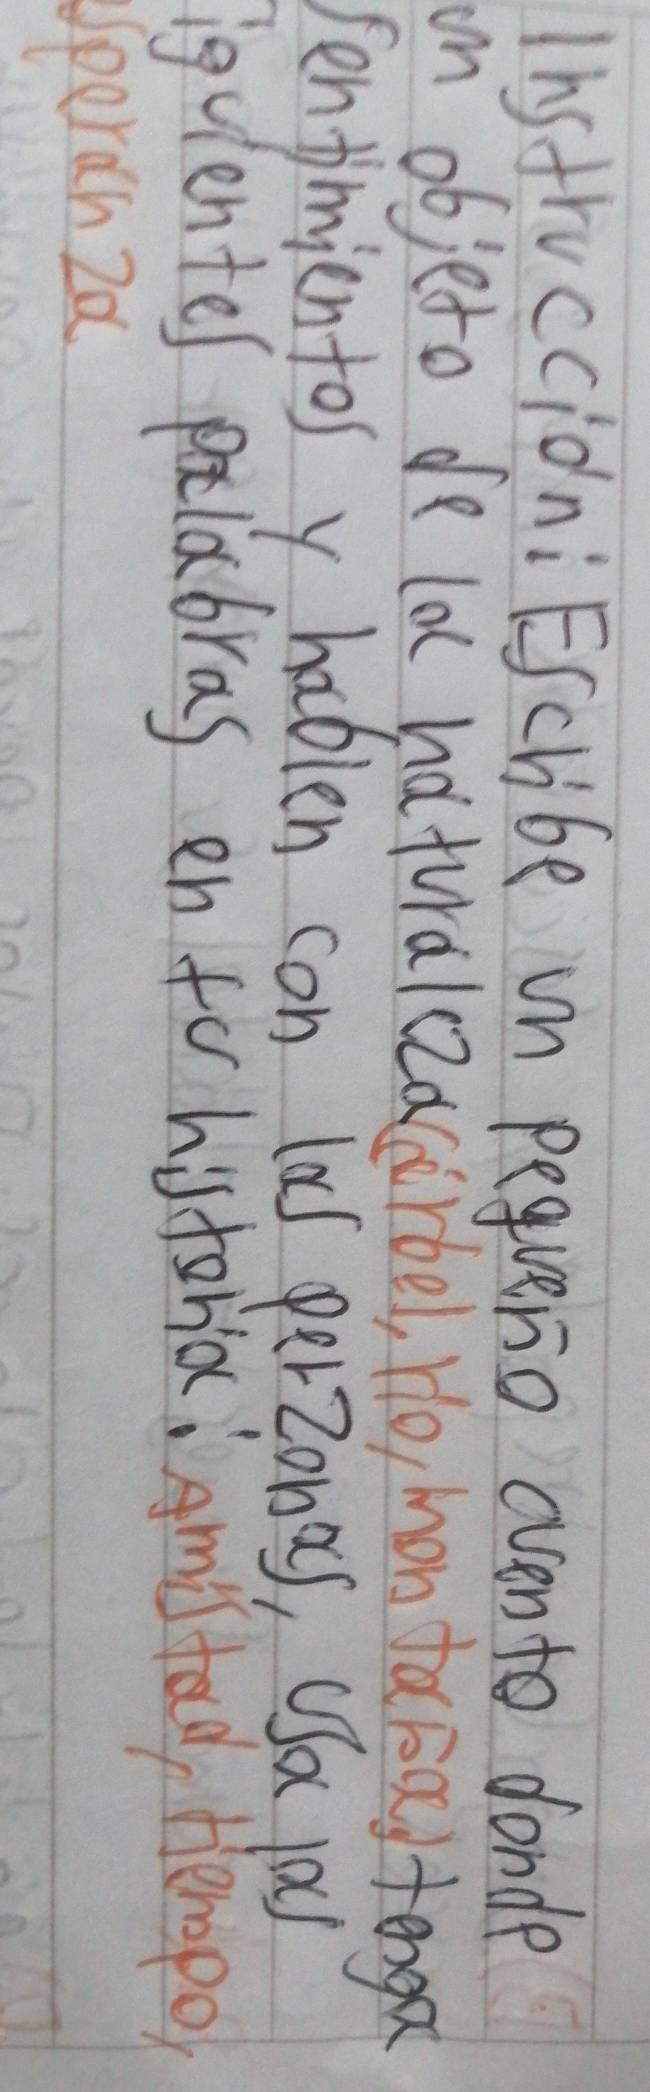 Instrucción: Escribe un pequeño cuento donde
un objeto de la naturaleza (árbol, río, montaña) tenga
sentimientos y hablen con las perzonas, usa las
siguientes palabras en tu historia: Amistad, tiempo,
esperanza